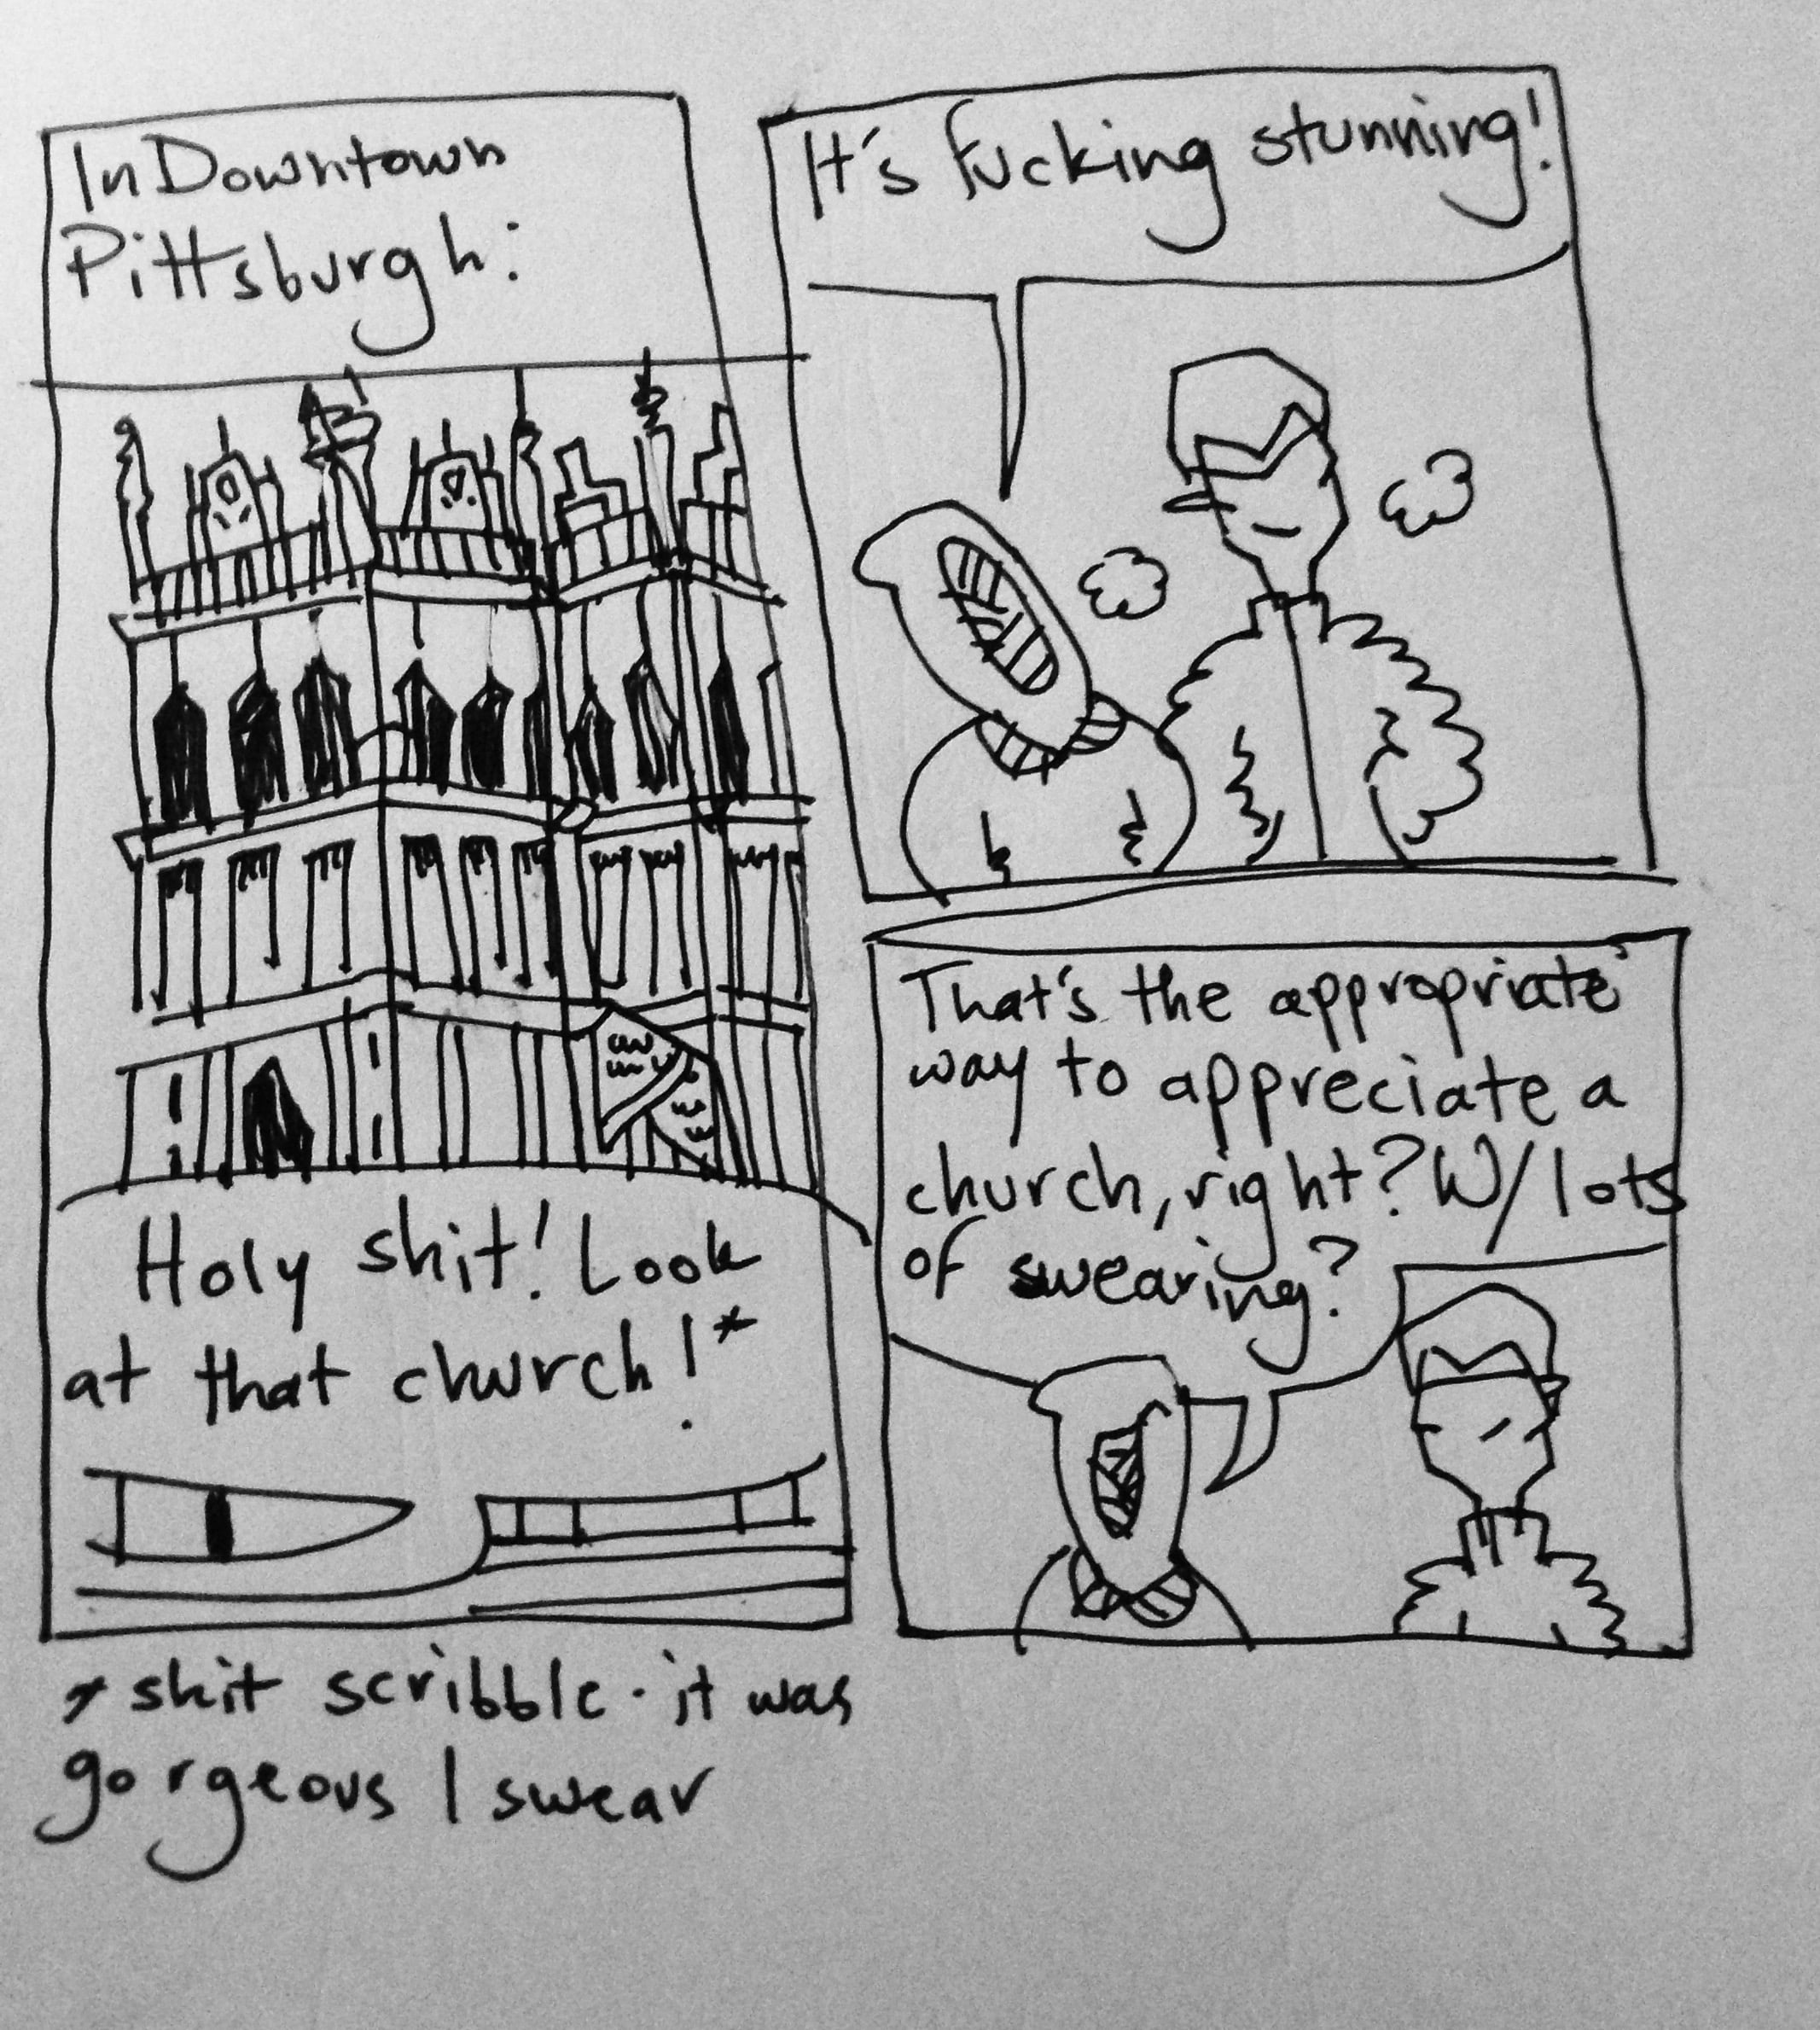 In Downtown
Pittsburgh:
Holy shit! Look
at that church!*
* shit scribble - it was
gorgeous I swear
It's fucking stunning!
That's the appropriate
way to appreciate a
church, right? W/ lots
of swearing?